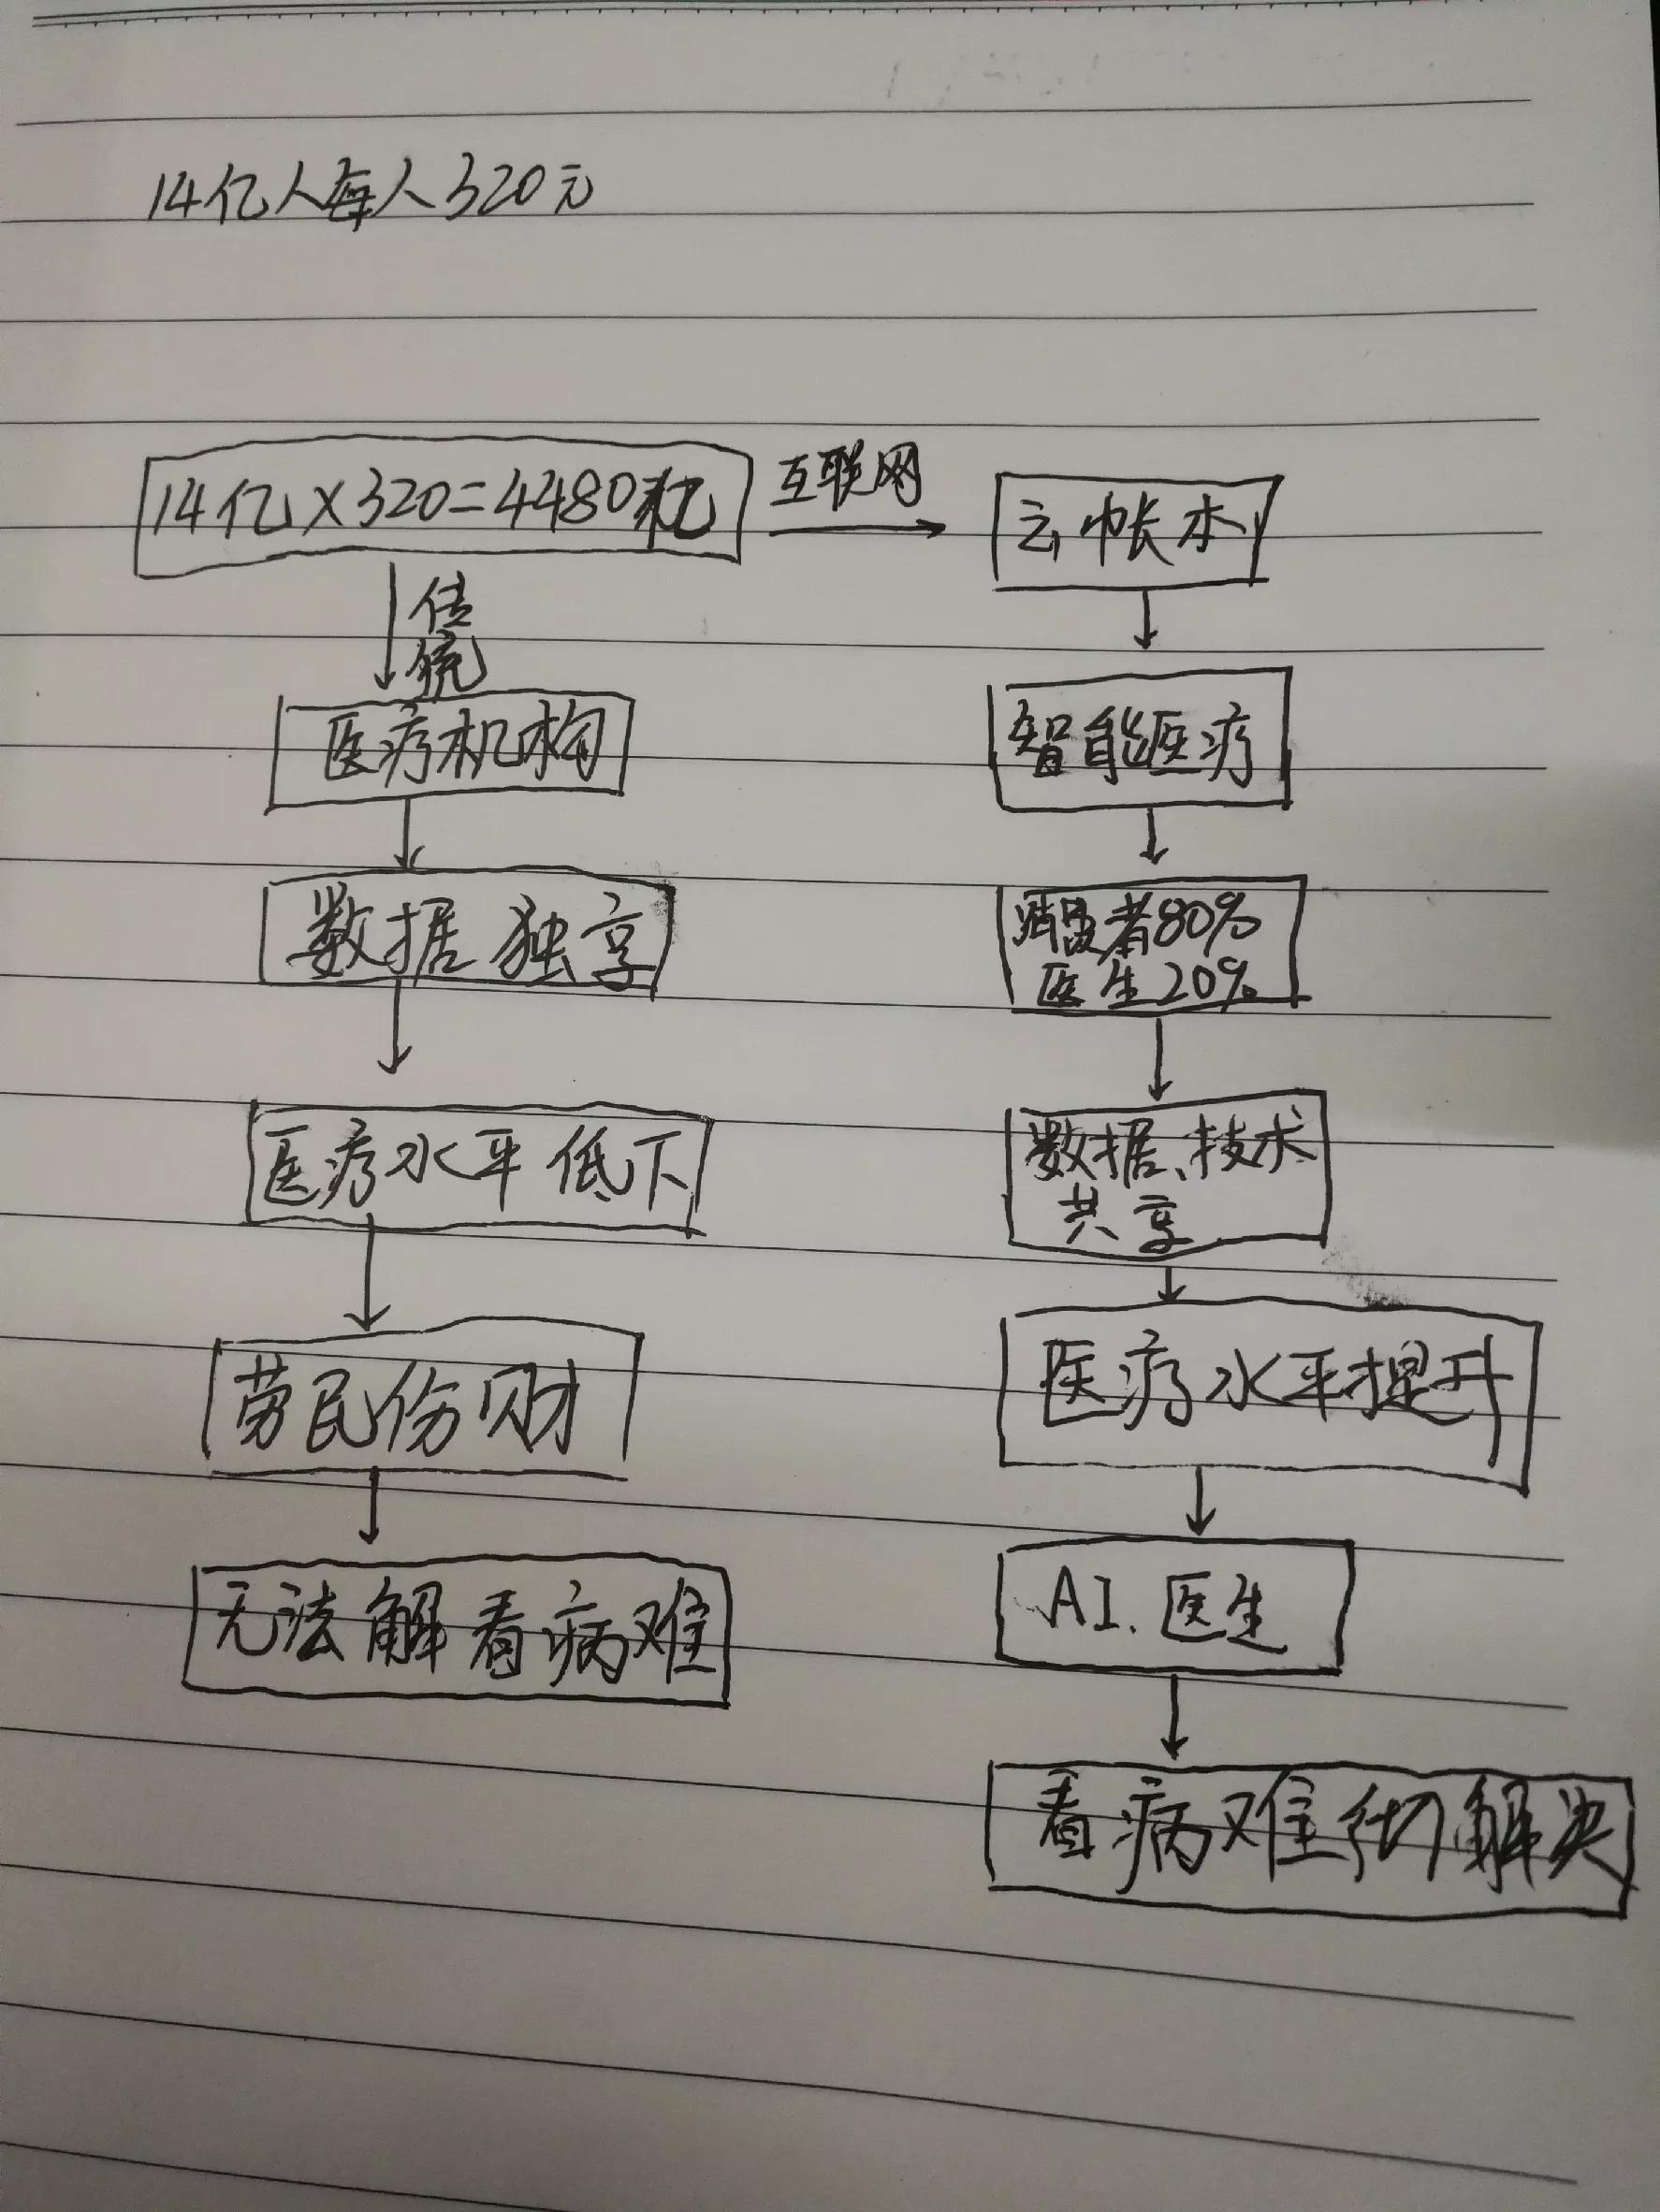 14亿人每人320元
14亿×320=4480亿
互联网
云帐本
传
统
医疗机构
智能医疗
数据独享
消费者80%
医生20%
医疗水平低下
数据、技术
共享
劳民伤财
医疗水平提升
无法解看病难
AI.医生
看病难彻解决